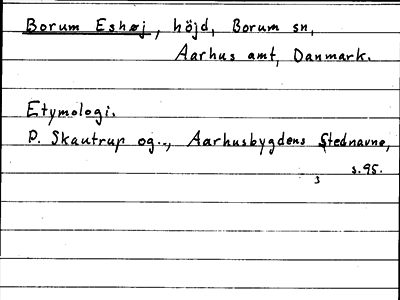 Borum Eshøj, höjd, Borum sn,
Aarhus amt, Danmark.
Etymologi.
P. Skautrup og.., Aarhusbygdens Stednavne,
s.95.